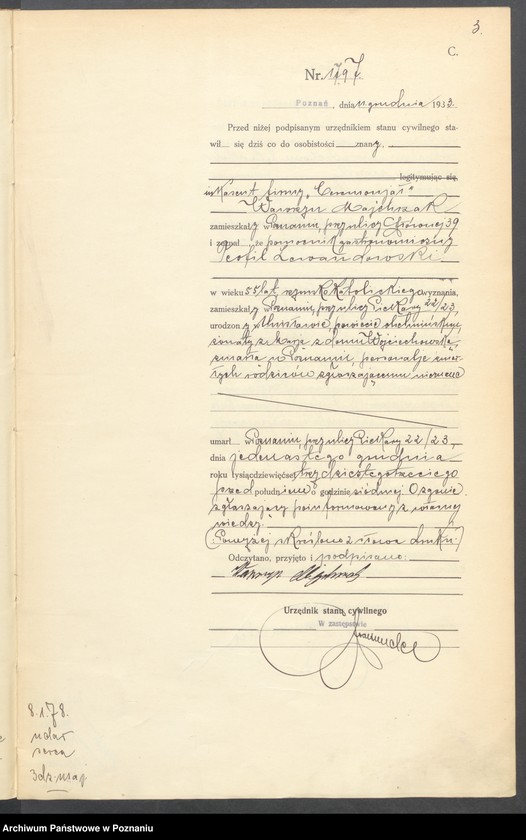 3.
C.
Nr. 1797
Poznań, dnia 11 grudnia 1933.
Przed niżej podpisanym urzędnikiem stanu cywilnego sta-
wił się dziś co do osobistości znany,
legitymując się
inkasent firmy "Ceremonjał"
Wawrzyn Majchrzak
zamieszkały w Poznaniu, przy ulicy 39
i zeznał, że pomocnik gastronomiczny
Teofil Lewandowski
w wieku 55 lat, rzymsko katolickiego wyznania,
zamieszkały w Poznaniu, przy ulicy Piekary 22/23,
urodzony w powiecie chełmińskim,
żonaty z Marją z domu Wojciechowską,
zmarła w Poznaniu, personalje zmar-
łych rodziców zgłaszającemu nieznane
umarł w Poznaniu, przy ulicy Piekary 22/23,
dnia jedenastego grudnia
roku tysiącdziewięćset trzydziestegotrzeciego
przed południem o godzinie siódmej. O zgonie
zgłaszający poinformowany z własnej
wiedzy.
(Powyżej skreślono 2 słowa druku.)
Odczytano, przyjęto i podpisano:
Wawrzyn Majchrzak
Urzędnik stanu cywilnego
W zastępstwie
8.1.78.
udar
serca
Archiwum Państwowe w Poznaniu